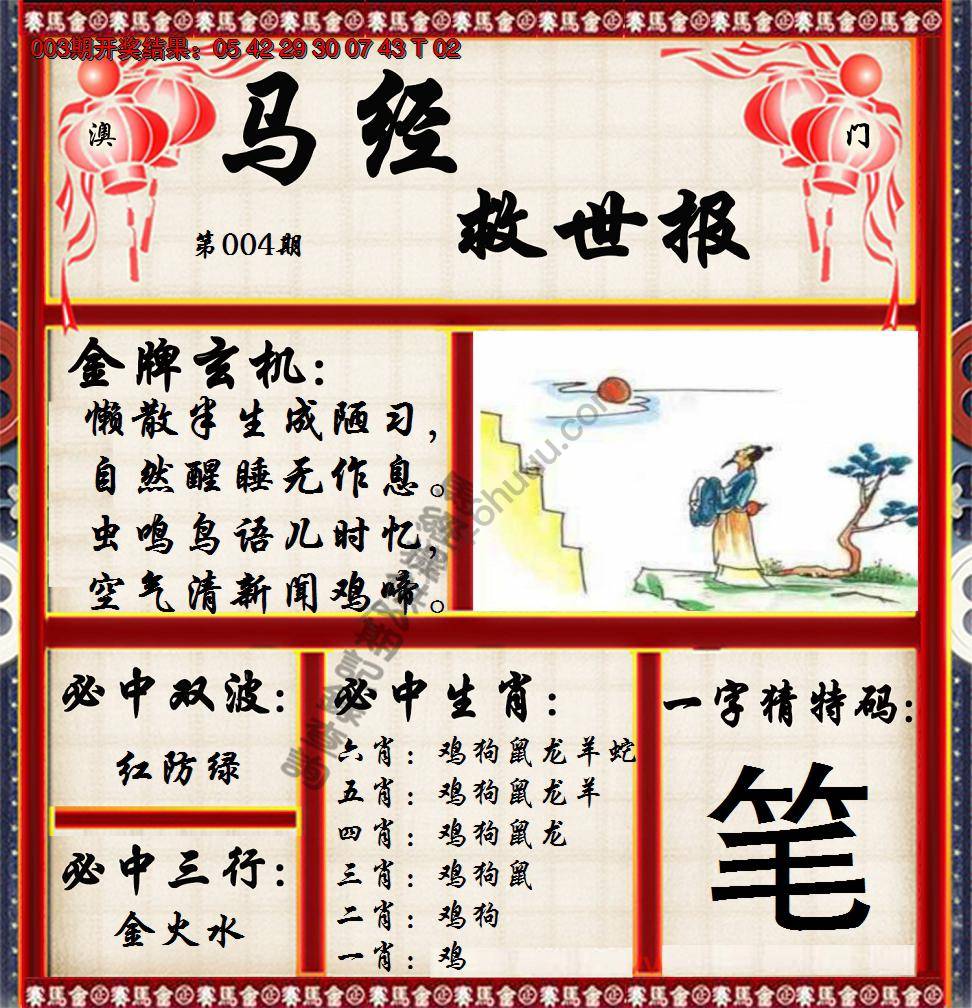 赛馬会 赛馬会 赛馬会 赛馬会 赛馬会 赛馬会 赛馬会 赛馬会
003期开奖结果：05 42 29 30 07 43 T 02
澳 门
马经
救世报
第004期
金牌玄机：
懒散半生成陋习，
自然醒睡无作息。
虫鸣鸟语儿时忆，
空气清新闻鸡啼。
必中双波：
红防绿
必中三行：
金火水
必中生肖：
六肖：鸡狗鼠龙羊蛇
五肖：鸡狗鼠龙羊
四肖：鸡狗鼠龙
三肖：鸡狗鼠
二肖：鸡狗
一肖：鸡
一字猜特码：
笔